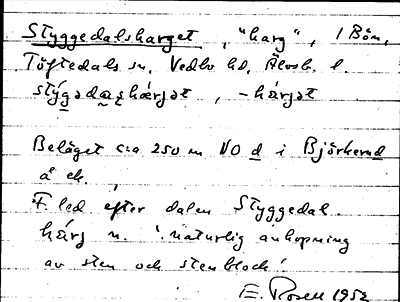 Styggedalsharget, "harg", i Böm,
Töftedals sn. Vedbo hd, Älvsb. l.
stýgədaʂhærjət, -hárjət
Beläget c:a 250 m NO d i Björkerud
å ek.
F. led efter dalen Styggedal.
härj n. 'naturlig anhopning
av sten och stenblock'.
E. Rosell 1952